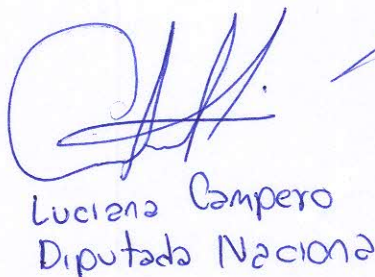 Luciana Campero
Diputada Nacional